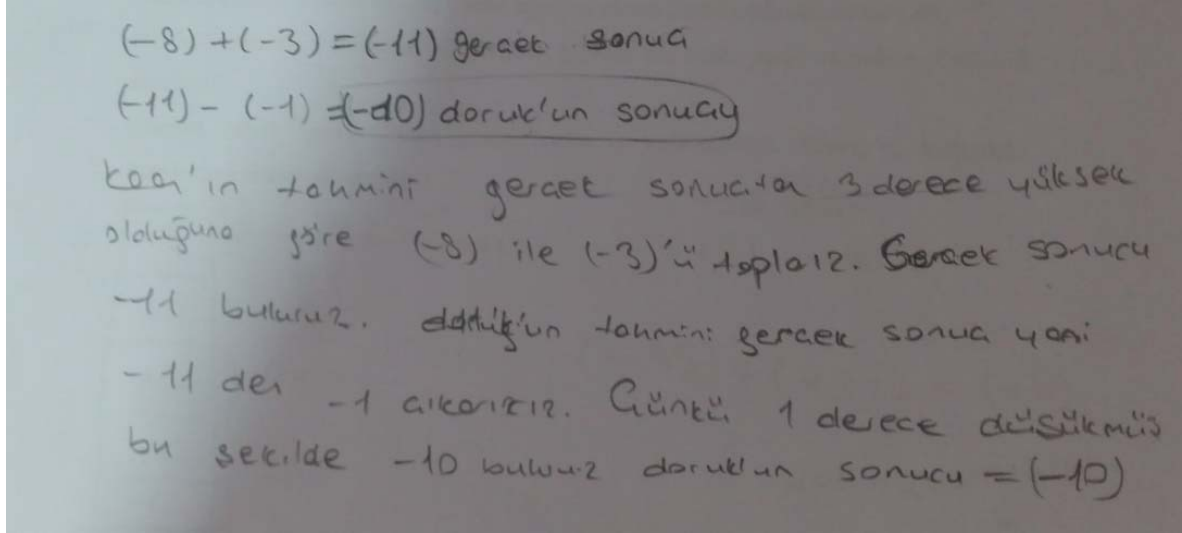 (-8) + (-3) = (-11) gerçek sonuç
(-11) - (-1) = (-10) doruk'un sonucuy
Koç'ın tahmini gerçek sonuçta 3 derece yüksek
olduğuna göre (-8) ile (-3)'ü toplarız. Gerçek sonucu
-11 buluruz. doruk'un tahmini gerçek sonuç yani
-11 den -1 çıkarırız. Çünkü 1 derece düşükmüş
bu şekilde -10 buluruz doruk'un sonucu = (-10)